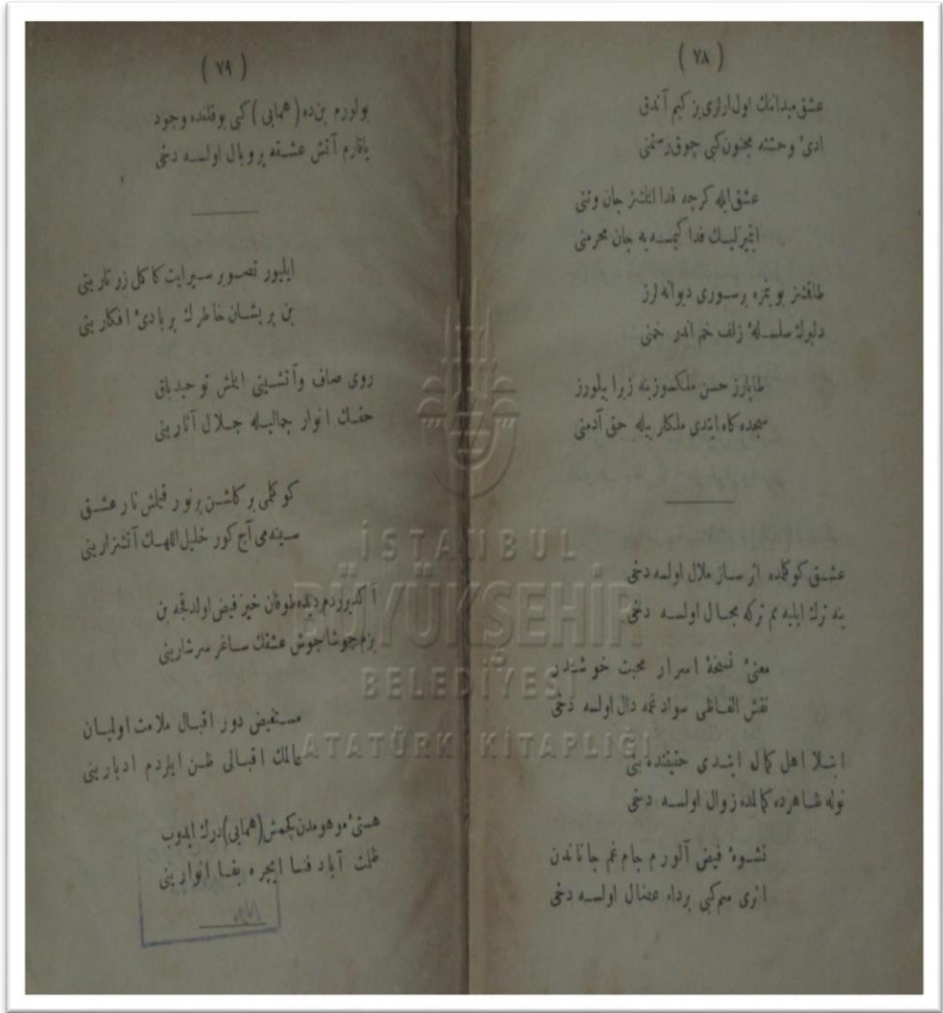 ( ٧٨ )
عشق میدانك اول ارلری بز كیم آندق
ادئ وحشته مجنون كبی چوق رستمی
عشق ایله كرچه فدا ایتمشز جان وتنی
ایتمیز لیك فدا كیمسه یه جان محرمنی
طاقمشز بوینمزه برسوری دیوانه لرز
دلبرك سلسلهٔ زلف خم اندر خمنی
طاپارز حسن ملكسوزینه زیرا بیلورز
سجده كاه ایتدی ملكلر بیله حق آدمنی
عشق كوكلمده اثر ساز ملال اولسه دخی
ینه ترك ایلیه مم تركه مجال اولسه دخی
معنئ نسخهٔ اسرار محبت خوشدر
نقش الفاظی سواد غمه دال اولسه دخی
ابتلا اهل كمال ایتدی حقیقتده بنی
نوله ظاهرده كمالمده زوال اولسه دخی
نشوهٔ فیض آلورم جام غم جاناندن
اثری سم كبی برداء عضال اولسه دخی
( ٧٩ )
بولورم بن ده (همایی) كبی یوقلقده وجود
یاقارم آتش عشقه پر وبال اولسه دخی
ایلیور تصویر سیرایت كاكل زر تارینی
بن پریشان خاطرك بربادئ افكارینی
روی صاف وآتشینی ایتمش توحید باق
حقك انوار جمالیله جلال آثارینی
كوكلمی بر كلشن پرنور قیلمش نار عشق
سینه می آچ كور خلیل اللهك آتشزارینی
آكدیرردم دیده طوفان خیز فیض اولدقجه بن
بزم جوشاجوش عشقك ساغر سرشارینی
مستفیض دور اقبال ملامت اولمیان
مالك اقبالی ظن ایلردم ادبارینی
هستئ موهومدن كچمش (همایی) درك ایدوب
ظلمت آباد فنا ایچره بقا انوارینی
İSTANBUL
BÜYÜKŞEHİR
BELEDİYESİ
ATATÜRK KİTAPLIĞI